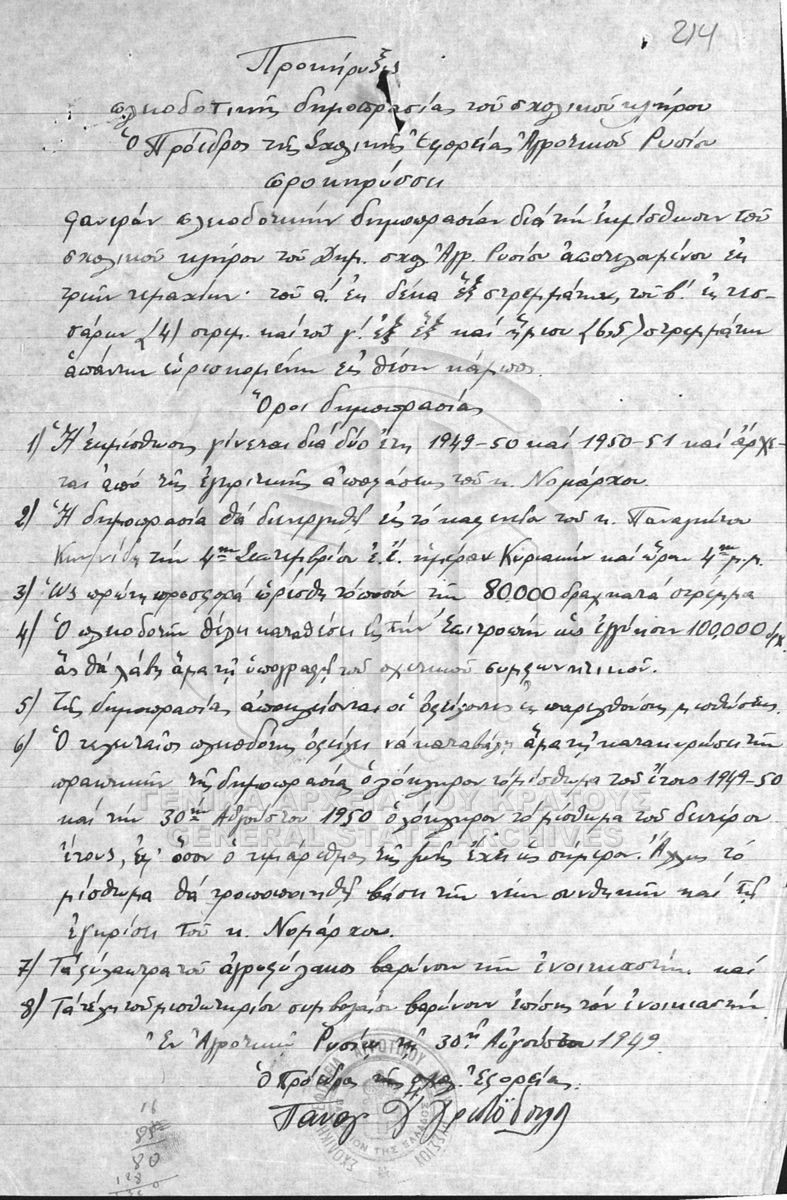 214
Προκήρυξις
πλειοδοτικῆς δημοπρασίας τοῦ σχολικοῦ κλήρου
Ὁ Πρόεδρος τῆς Σχολικῆς Ἐφορείας Ἀγροτικοῦ Ρυσίου
προκηρύσσει
φανεράν πλειοδοτικήν δημοπρασίαν διά τήν ἐκμίσθωσιν τοῦ
σχολικοῦ κλήρου τοῦ Δημ. σχολ. Ἀγρ. Ρυσίου ἀποτελουμένου ἐκ
τριῶν τεμαχίων· τοῦ α'. ἐκ δέκα ἕξ στρεμμάτων, τοῦ β'. ἐκ τεσ-
σάρων (4) στρεμ. καί τοῦ γ'. ἐξ ἕξ καί ἥμισυ (6,5) στρεμμάτων
ἁπάντων εὑρισκομένων εἰς θέσιν κάμπος.
Ὅροι δημοπρασίας
1) Ἡ ἐκμίσθωσις γίνεται διά δύο ἔτη 1949-50 καί 1950-51 καί ἄρχε-
ται ἀπό τῆς ἐγκριτικῆς ἀποφάσεως τοῦ κ. Νομάρχου.
2) Ἡ δημοπρασία θά διενεργηθῇ εἰς τό καφενεῖον τοῦ κ. Παναγιώτου
τήν 4ην Σεπτεμβρίου ἐ.ἔ. ἡμέραν Κυριακήν καί ὥραν 4ην μ.μ.
3) Ὡς πρώτη προσφορά ὡρίσθη τό ποσόν τῶν 80.000 δραχ. κατά στρέμμα
4) Ὁ πλειοδοτῶν θέλει καταθέσει εἰς τήν Ἐπιτροπήν ὡς ἐγγύησιν 100,000 δρχ.
ἅς θά λάβῃ ἅμα τῇ ὑπογραφῇ τοῦ σχετικοῦ συμφωνητικοῦ.
5) Τῆς δημοπρασίας ἀποκλείονται οἱ ὀφείλοντες ἐκ παρελθούσης μισθώσεως.
6) Ὁ τελευταῖος πλειοδότης ὀφείλει νά καταβάλῃ ἅμα τῇ κατακυρώσει τῶν
πρακτικῶν τῆς δημοπρασίας ὁλόκληρον τό μίσθωμα τοῦ ἔτους 1949-50
καί τήν 30ην Αὐγούστου 1950 ὁλόκληρον τό μίσθωμα τοῦ δευτέρου
ἔτους, ἐφ' ὅσον ὁ τιμάριθμος τῆς ζωῆς ἔχει ὡς σήμερον. Ἄλλως τό
μίσθωμα θά τροποποιηθῇ βάσει τῶν νέων συνθηκῶν καί τῇ
ἐγκρίσει τοῦ κ. Νομάρχου.
7) Τά φύλακτρα τοῦ ἀγροφύλακος βαρύνουν τόν ἐνοικιαστήν καί
8) Τά τέλη τοῦ μισθωτηρίου συμβολαίου βαρύνουν ἐπίσης τόν ἐνοικιαστήν
Ἐν Ἀγροτικῷ Ρυσίῳ τῇ 30ῇ Αὐγούστου 1949
Ὁ Πρόεδρος τῆς σχολ. Ἐφορείας.
Παναγ. Χ" Χριστόδουλου
ΓΕΝΙΚΑ ΑΡΧΕΙΑ ΤΟΥ ΚΡΑΤΟΥΣ
GENERAL STATE ARCHIVES
80